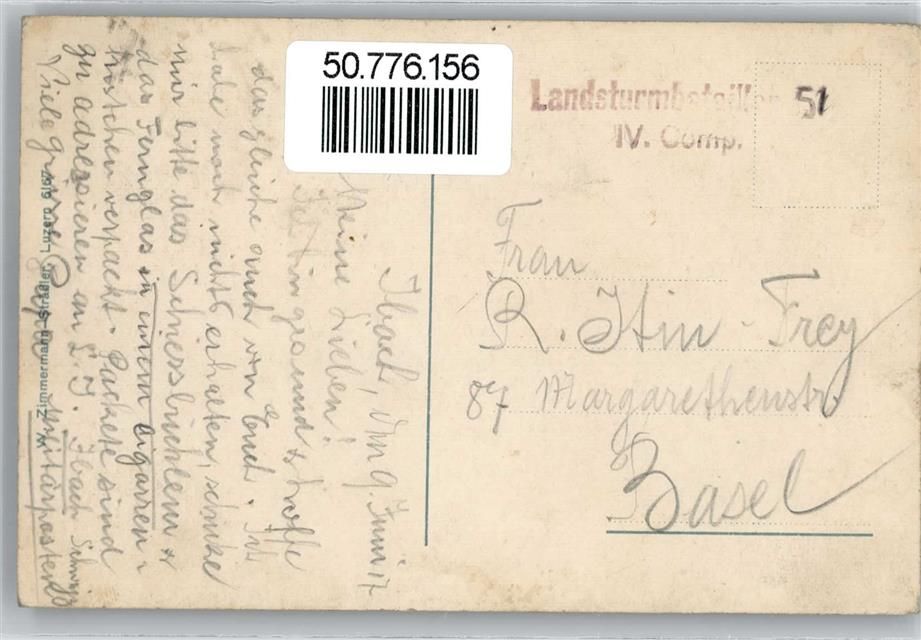 50.776.156
Landsturmbataillon 51
IV. Comp.
Frau
R. Itin-Frey
87 Margarethenstr.
Basel
Ibach, den 9. Juni
Meine Lieben!
Bin gesund & hoffe
das gleiche auch von Euch. Ich
habe noch nichts erhalten, schicke
mir bitte das Schiessbüchlein &
das Fernglas in einem Cigarren-
kistchen verpackt. Packete sind
zu adressieren an E. I. Ibach Schwyz
Viele Grüsse Papa Militärposten
W. Zimmermann-Strässler, Luzern 6197